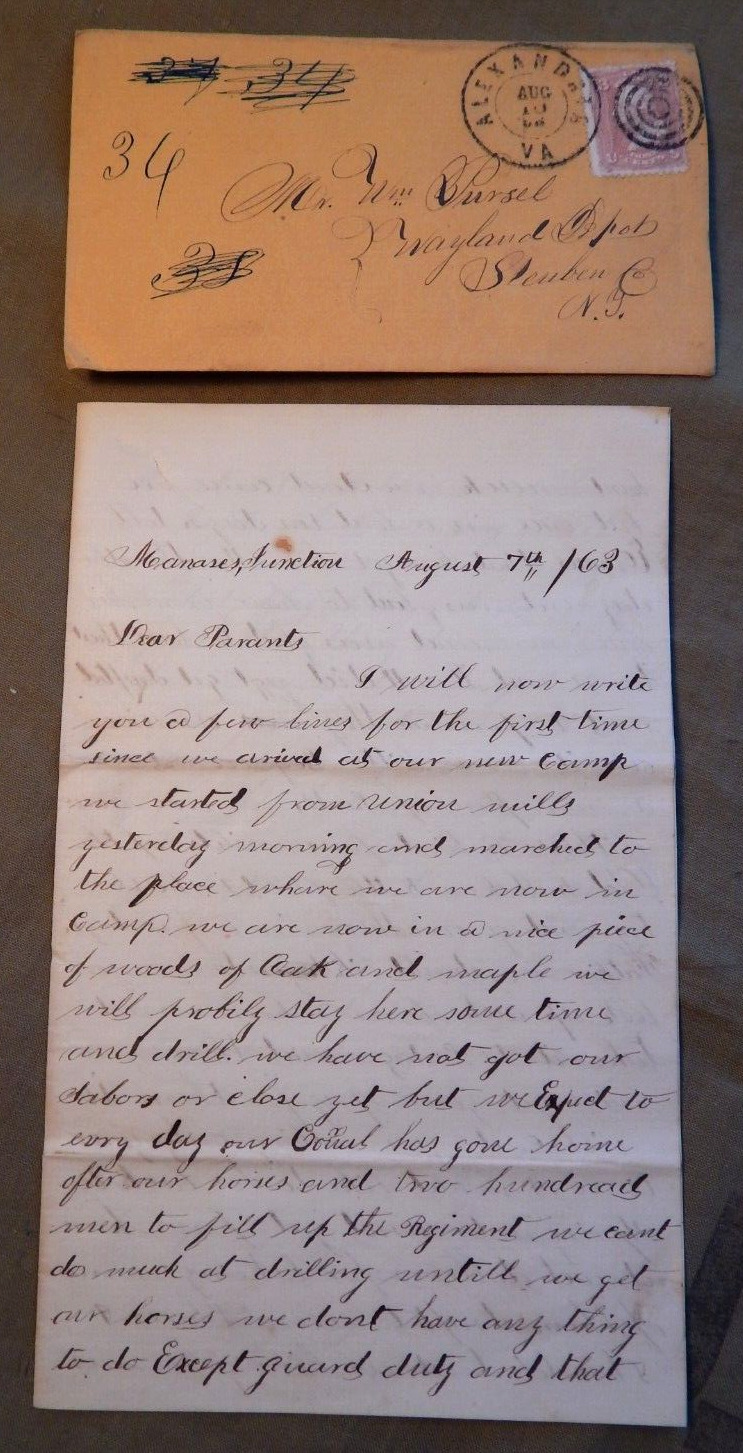 34
34
ALEXANDRIA
AUG
10
VA
Mr. Wm Pursel
Wayland Depot
Steuben Co
N.Y.
Manases, Junction August 7th /63
Dear Parants
I will now write
you a few lines for the first time
since we arived at our new Camp
we started from Union mills
yesterday morning and marched to
the place whare we are now in
Camp. we are now in a nice piece
of woods of Oak and maple we
will probily stay here some time
and drill. we have not got our
Sabors or close yet but we Expect to
evry day our Conal has gone home
after our horses and two hundread
men to fill up the Regiment we cant
do much at drilling untill we get
our horses we dont have any thing
to do Except guard duty and that